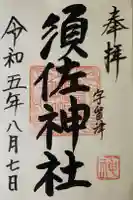 奉拝
須佐神社
令和五年八月七日